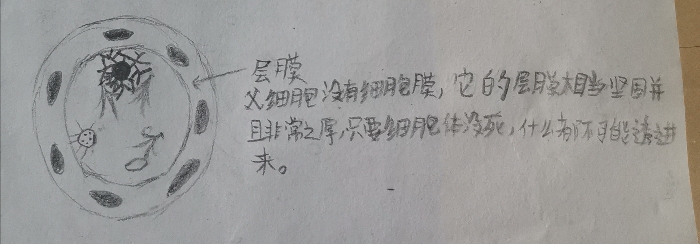 层膜
父细胞没有细胞膜，它的层膜相当坚固并
且非常之厚，只要细胞体没死，什么都不可能透进
来。